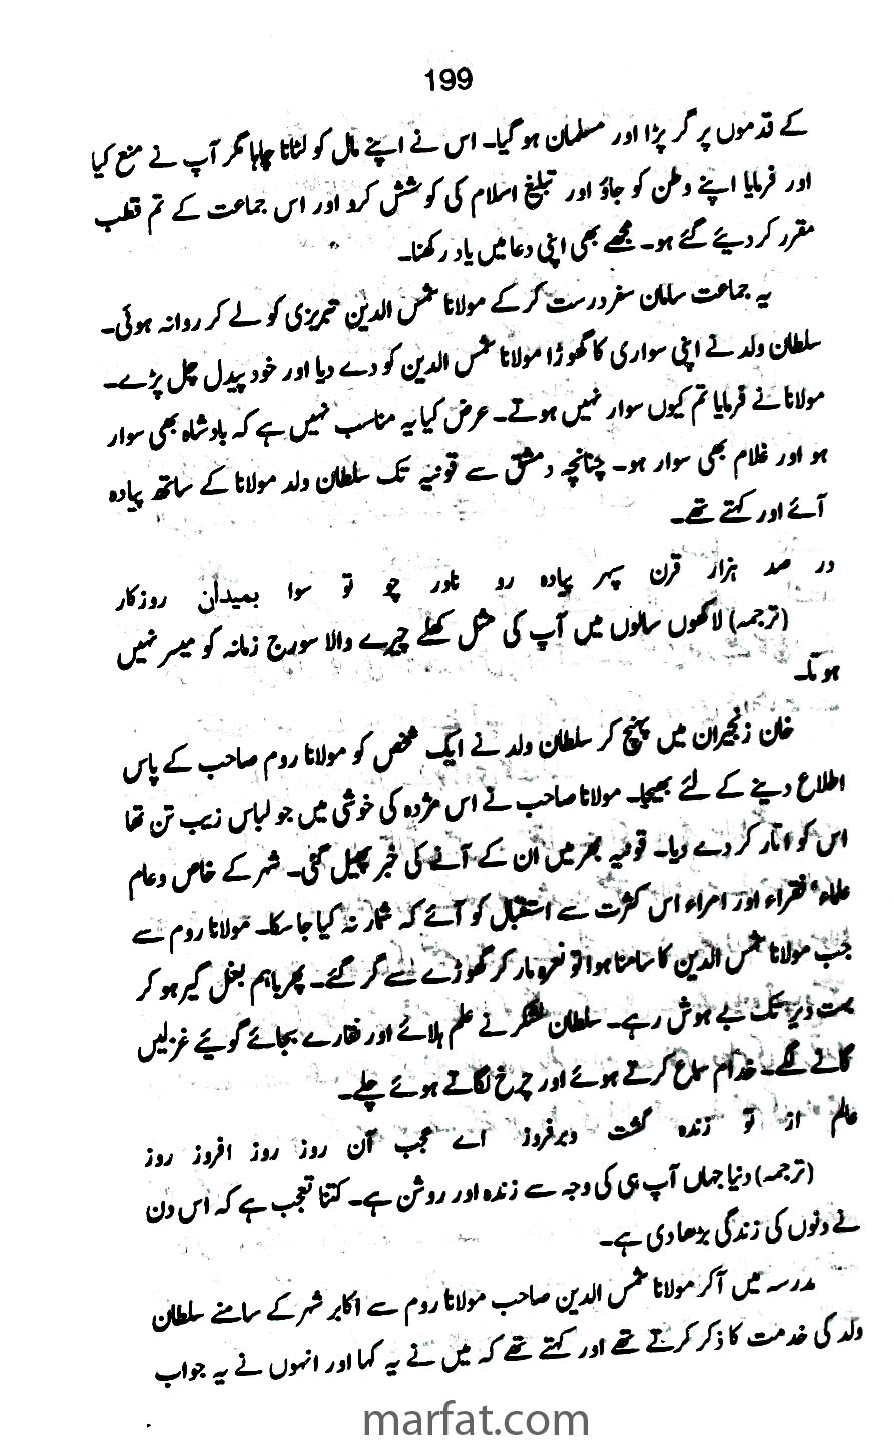 199
کے قدموں پر گر پڑا اور مسلمان ہو گیا۔ اس نے اپنے مال کو لٹانا چاہا مگر آپ نے منع کیا
اور فرمایا اپنے وطن کو جاؤ اور تبلیغ اسلام کی کوشش کرو اور اس جماعت کے تم قطب
مقرر کر دیئے گئے ہو۔ مجھے بھی اپنی دعا میں یاد رکھنا۔
یہ جماعت سامان سفر درست کر کے مولانا شمس الدین تبریزی کو لے کر روانہ ہوئی۔
سلطان ولد نے اپنی سواری کا گھوڑا مولانا شمس الدین کو دے دیا اور خود پیدل چل پڑے۔
مولانا نے فرمایا تم کیوں سوار نہیں ہوتے۔ عرض کیا یہ مناسب نہیں ہے کہ بادشاہ بھی سوار
ہو اور غلام بھی سوار ہو۔ چنانچہ دمشق سے قونیہ تک سلطان ولد مولانا کے ساتھ پیادہ
آئے اور کہتے تھے۔
در صد ہزار قرن سپہر پیادہ رو نادر چو تو سوا بمیدان روزکار
(ترجمہ) لاکھوں سالوں میں آپ کی مثل کھلے چہرے والا سورج زمانہ کو میسر نہیں
ہوتا۔
خان زنجیران میں پہنچ کر سلطان ولد نے ایک شخص کو مولانا روم صاحب کے پاس
اطلاع دینے کے لئے بھیجا۔ مولانا صاحب نے اس مژدہ کی خوشی میں جو لباس زیب تن تھا
اس کو اتار کر دے دیا۔ قونیہ بھر میں ان کے آنے کی خبر پھیل گئی۔ شہر کے خاص و عام
علماء، فقراء اور امراء اس کثرت سے استقبال کو آئے کہ شمار نہ کیا جا سکا۔ مولانا روم سے
جب مولانا شمس الدین کا سامنا ہوا تو نعرہ مار کر گھوڑے سے گر گئے۔ پھر باہم بغل گیر ہو کر
بہت دیر تک بے ہوش رہے۔ سلطان لشکر نے علم ہلائے اور نقارے بجائے گویئے غزلیں
گانے لگے۔ خدام سماع کرتے ہوئے اور چرخ لگاتے ہوئے چلے۔
عالم از تو زندہ گشت دبرفروز اے عجب آن روز روز افروز روز
(ترجمہ) دنیا جہاں آپ ہی کی وجہ سے زندہ اور روشن ہے۔ کتنا تعجب ہے کہ اس دن
نے دنوں کی زندگی بڑھا دی ہے۔
مدرسہ میں آکر مولانا شمس الدین صاحب مولانا روم سے اکابر شہر کے سامنے سلطان
ولد کی خدمت کا ذکر کرتے تھے اور کہتے تھے کہ میں نے یہ کہا اور انہوں نے یہ جواب
marfat.com